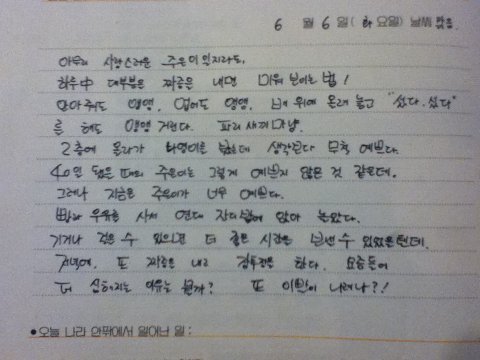 6 월 6 일 ( 화 요일) 날씨 맑음.
아무리 사랑스러운 주은이 일지라도,
하루中 대부분은 짜증을 내면 미워 보이는 법!
안아줘도 앵앵, 업어도 앵앵, 배 위에 올려 놓고 "섰다. 섰다"
를 해도 앵앵 거린다. 파리 새끼 마냥.
2층에 올라가 하영이를 봤는데 생각보다 무척 예쁘다.
40일 됐을 때의 주은이는 그렇게 예쁘지 않은 것 같은데.
그러나 지금은 주은이가 너무 예쁘다.
빵과 우유를 사서 연대 잔디밭에 앉아 놀았다.
기거나 걸을 수 있으면 더 좋은 시간을 보낼 수 있었을텐데.
저녁에, 또 짜증을 내고 잠투정을 한다. 요즘들어
더 심해지는 이유는 뭘까? 또 이빨이 나려나?!
•오늘 나라 안팎에서 일어난 일 :